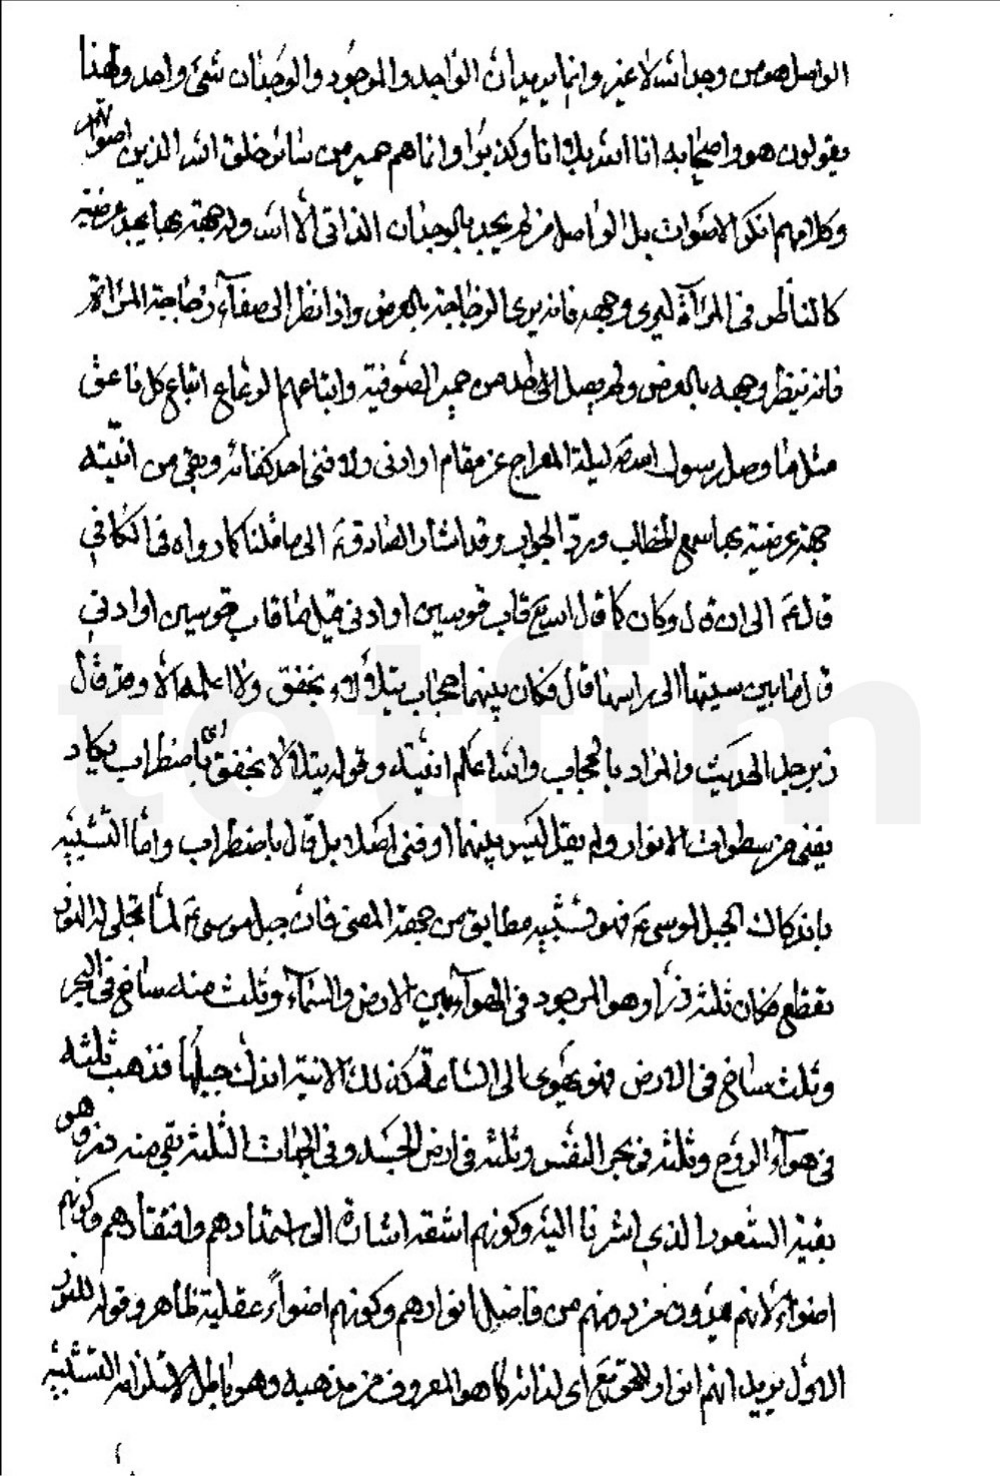 الواصل هو من وجد الله لا غير وانما يريد ان الواجد والموجود والوجدان شيء واحد ولهذا
يقولون هو واصحابه انا الله بلا انا وكذبوا وانما هم حمير من سائر خلق الله الذين اصواتهم
وكلامهم انكر الاصوات بل الواصل من لم يجد بالوجدان الذاتي الا الله وله جهة بها يجد عرضية
كالناظر في المرآة ليرى وجهه فانه يرى الزجاجة بالعرض واذا نظر الى صفآء زجاجة المرآة
فانه ينظر وجهه بالعرض ولم يصل الى احد من حمير الصوفية واتباعهم الرعاع اتباع كل ناعق
مثل ما وصل رسول الله ص ليلة المعراج عن مقام او ادنى ولا فني احد كفنائه وبقي من انيته
جهة عرضية بها سمع الخطاب ورد الجواب وقد اشار الصادق ع الى ما قلنا كما رواه في الكافي
قال ع الى ان قال وكان كما قال الله تع قاب قوسين او ادنى قيل ما قاب قوسين او ادنى
قال ما بين سيتها الى راسها قال فكان بينهما حجاب يتلألؤ بخفق ولا اعلمه الا وقد قال
زبرجد الحديث والمراد بالحجاب والله اعلم انيته وقوله يتلألأ بخفق اي باضطراب يكاد
يفنى من سطوات الانوار ولم يقل ليس بينهما او فني اصلا بل قال باضطراب واما التشبيه
بانه كان الجبل لموسى ع فهو تشبيه مطابق من جهة المعنى فان جبل موسى ع لما تجلى له النور
تقطع فكان ثلثه ذرا وهو الموجود في الهوآء بين الارض والسمآء وثلث منه ساخ في البحر
وثلث ساخ في الارض فهو يهوي الى الساعة كذلك الانية اندك جبلها فذهب ثلثه
في هوآء الروح وثلثه في بحر النفس وثلثه في ارض الجسد وفي الجهات الثلثة بقي منه ذر وهي
بقية الشعور الذي اشرنا اليه وكونهم اشقه اشارة الى استمدادهم وافتقادهم وكونهم
اضواء لانهم من فاضل انوارهم وكونهم اضواءً عقلية ظاهر وقوله للنور
الاول يريد انهم انوار للحق تع اي لذاته كما هو المعروف من مذهبه وهو باطل لاستلزامه التشبيه